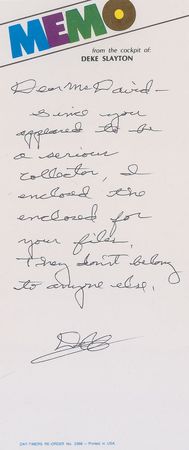 MEMO
from the cockpit of:
DEKE SLAYTON
Dear Mr David-
Since you
appeared to be
a serious
collector, I
enclosed the
enclosed for
your files.
They don't belong
to anyone else.
DAY-TIMERS RE-ORDER No. 2396 — Printed in USA